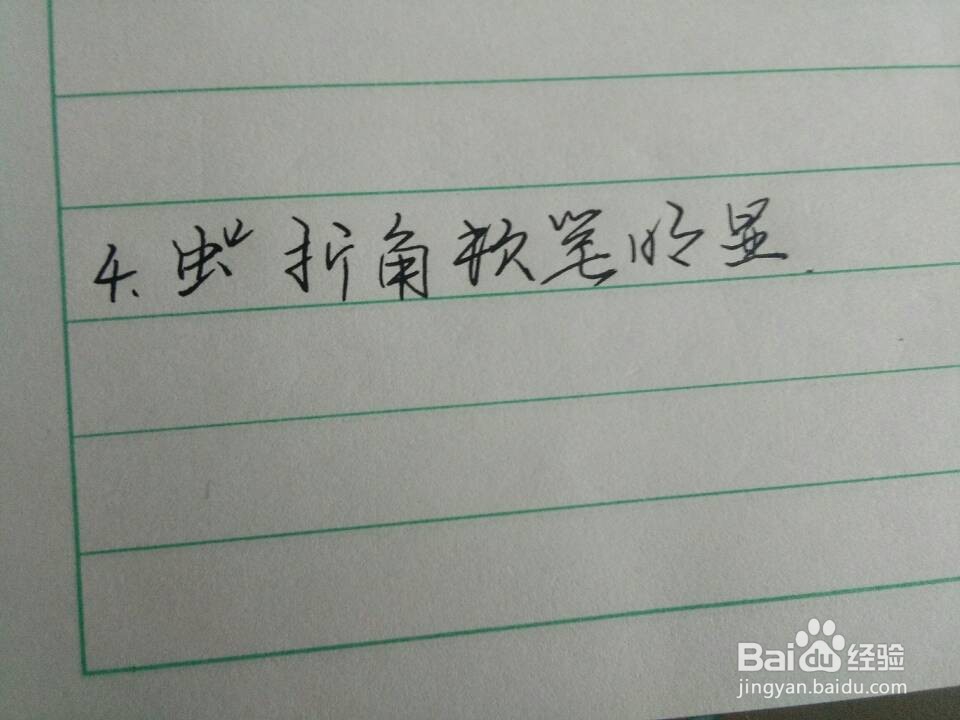 4. 虫" 折角软笔明显.
Baidu经验
jingyan.baidu.com